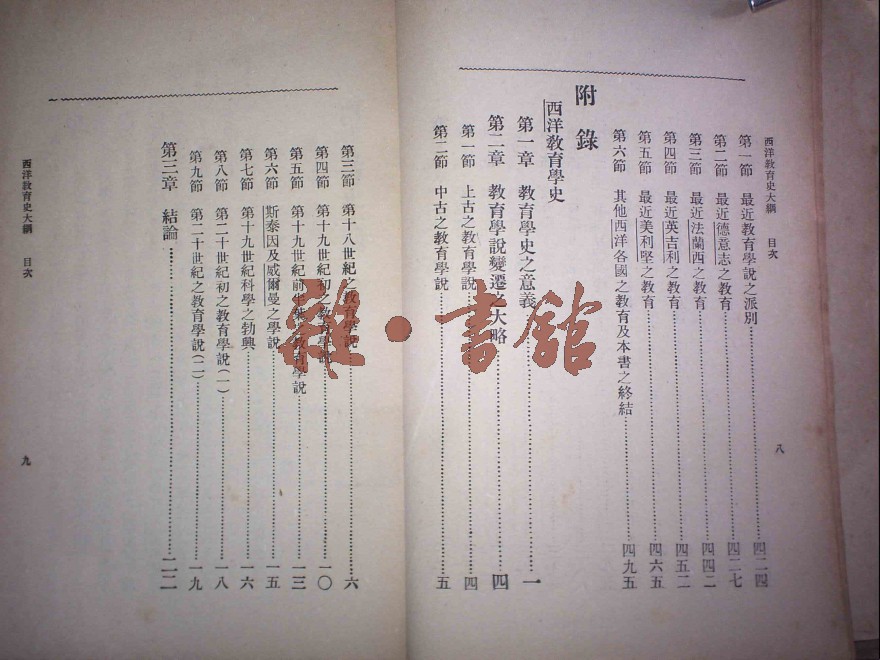 西洋教育史大綱 目次 八
第一節 最近教育學說之派別 四二四
第二節 最近德意志之教育 四二七
第三節 最近法蘭西之教育 四四二
第四節 最近英吉利之教育 四五二
第五節 最近美利堅之教育 四六五
第六節 其他西洋各國之教育及本書之終結 四九五
附錄
西洋教育學史
第一章 教育學史之意義 一
第二章 教育學說變遷之大略 四
第一節 上古之教育學說 四
第二節 中古之教育學說 五
第三節 第十八世紀之教育學說 六
第四節 第十九世紀初之教育學說 一〇
第五節 第十九世紀前半葉之教育學說 一三
第六節 斯泰因及威爾曼之學說 一五
第七節 第十九世紀科學之勃興 一六
第八節 第二十世紀初之教育學說(一) 一八
第九節 第二十世紀之教育學說(二) 一九
第三章 結論 二二
西洋教育史大綱 目次 九
雜·書館